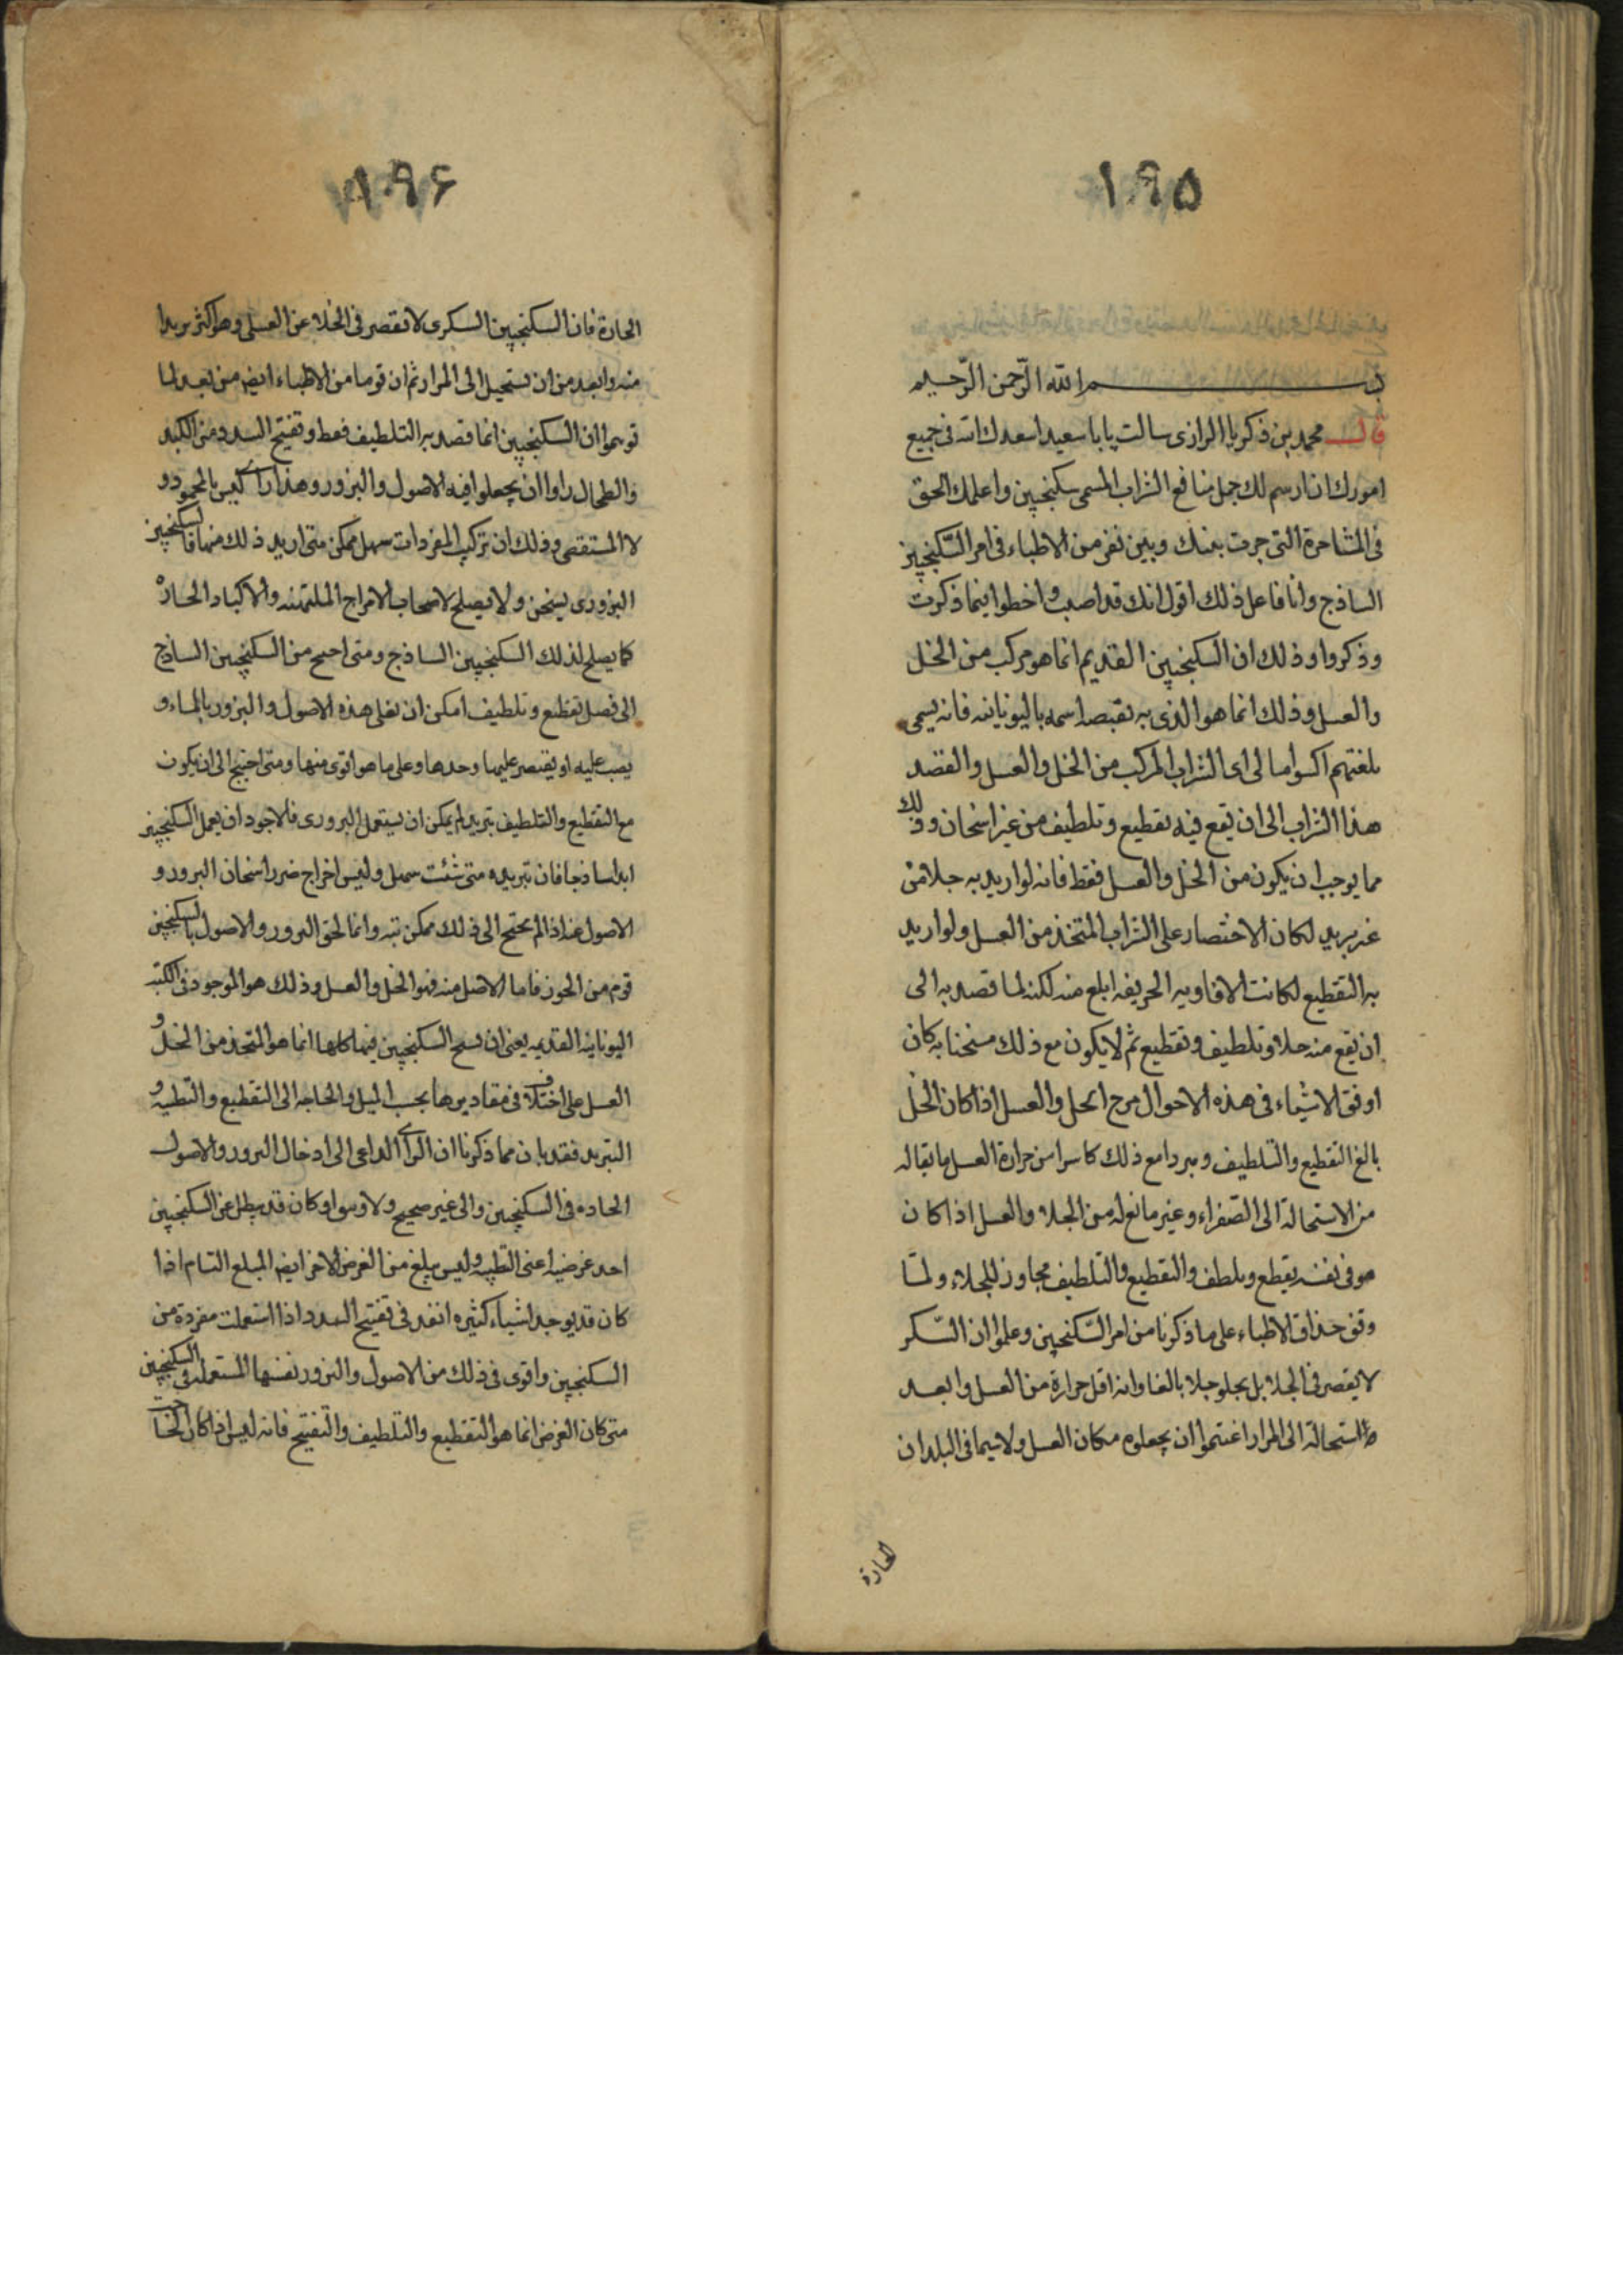 ۱۹۵
بسم الله الرّحمن الرّحيم
قال محمد بن زكريا الرازى سالت يابا سعيد اسعدك الله فى جميع
امورك ان ارسم لك جمل منافع الشراب المسمى سكنجبين واعلمك الحق
فى المشاجرة التى جرت بينك وبين نفر من الاطباء فى امر السّكنجبين
الساذج وانا فاعل ذلك اقول انك قد اصبت واخطوا فيما ذكرت
وذكروا وذلك ان السكنجبين القديم انما هو مركب من الخل
والعسل وذلك انما هو الذى به اسمه باليونانيه فانه يسمى
بلغتهم اكسوامالى اى الشراب المركب من الخل والعسل والقصد
هذا الشراب الى ان يقع فيه تقطيع وتلطيف من غير اسخان وذلك
مما يوجب ان يكون من الخل والعسل فقط فانه لو اريد به جلا من
غير بريد لكان الاختصار على الشراب المتخذ من العسل ولو اريد
به التقطيع لكانت الافاويه الحريفه ابلغ منه لكنه لما قصد به الى
ان يقع منه جلا وتلطيف وتقطيع ثم لا يكون مع ذلك مسخنا به كان
اوفق الاشياء فى هذه الاحوال مزج الخل والعسل اذا كان الخل
بالغ التقطيع والتلطيف ومبردا مع ذلك كاسرا من حرارة العسل مابقا له
من الاستحالة الى الصّفراء وغير مانع له من الجلا والعسل اذا كان
هو فى نفسه يقطع ويلطف والتقطيع والتلطيف مجاوز للجلاء ولمّا
وقف حذاق الاطباء على ما ذكرنا من امر السّكنجبين وعلموا ان السّكر
لا يقصر فى الجلا بل يجلو جلا بالغا وانه اقل حرارة من العسل وابعد
استحالة الى المرار اغتنموا ان يجعلوه مكان العسل ولاسيما فى البلدان
الحارة
۱۹۶
الحارة فان السكنجبين السكرى لا يقصر فى الجلا عن العسلى وهو اكثر بريدا
منه وابعد من ان يستحيل الى المرار ثم ان قوما من الاطباء ايضم من بعد لما
توهموا ان السكنجبين انما قصد به التلطيف فقط وتفتيح السدد من الكبد
والطحال راوا ان يجعلوا فيه الاصول والبزور وهذا راى ليس بالمحمود و
لا المستقصى وذلك ان تركيب المفردات سهل ممكن متى اريد ذلك منها فالسكنجبين
البزورى يسخن ولا يصلح لاصحاب الامزاج الملتهبه والاكباد الحارّة
كما يصلح لذلك السكنجبين الساذج ومتى احتيج من السكنجبين الساذج
الى فضل تقطيع وتلطيف امكن ان تغلى هذه الاصول والبزور بالماء و
يصب عليه او يقتصر عليها وحدها وعلى ما هو اقوى منها ومتى احتيج الى ان يكون
مع التقطيع والتلطيف تبريد لم يمكن ان يستعمل البزورى فالاجود ان يعمل السكنجبين
ابدا ساذجا فان تبريده متى شئت سهل وليس اخراج ضرر اسخان البزور و
الاصول عنه اذا لم يحتج الى ذلك ممكن بته وانما لحق البزور والاصول بالسكنجبين
قوم من الخوز فاما الاصل منه فهو الخل والعسل وذلك هو الموجود فى الكتب
اليونانيه القديمه يعنى ان نسخ السكنجبين فيها كلها انما هو المتخذ من الخل و
العسل على اختلاف فى مقاديرها بحسب الميل والحاجه الى التقطيع والتطفيه و
التبريد فقد بان مما ذكرنا ان الراى الداعى الى ادخال البزور والاصول
الحاده فى السكنجبين راى غير صحيح ولا وكان قد يبطل عن السكنجبين
احد غرضيه اعنى التطفيه وليس يبلغ من الغرض الاخر ايضم المبلغ التام اذا
كان قد يوجد اشياء كثيره انفد فى تفتيح السدد اذا استعملت مفردة من
السكنجبين واقوى فى ذلك من الاصول والبزور نفسها المستعمله فى السكنجبين
متى كان الغرض انما هو التقطيع والتلطيف والتفتيح فانه ليس اذا كان